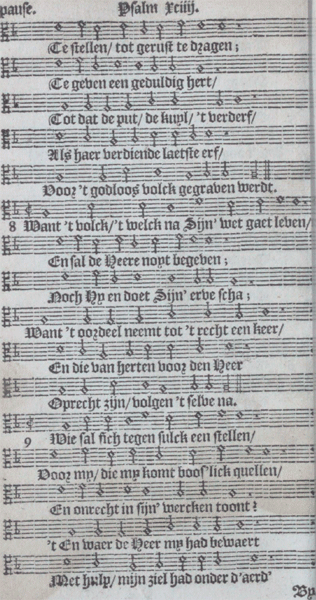 pause. Psalm xciiij.
Te stellen/ tot gerust te dragen;
Te geven een geduldig hert/
Tot dat de put/ de kuyl/ 't verderf/
Als haer verdiende laetste erf/
Voor 't godloos volck gegraven werdt.
8 Want 't volck/'t welck na Zijn' wet gaet leven/
En sal de Heere noyt begeven;
Noch Hy en doet Zijn' erve scha;
Want 't oordeel neemt tot 't recht een keer/
En die van herten voor den Heer
Oprecht zijn/ volgen 't selve na.
9 Wie sal sich tegen sulck een stellen/
Voor my/ die my komt boos'lick quellen/
En onrecht in sijn' wercken toont?
't En waer de Heer my had bewaert
Met hulp/ mijn ziel had onder d'aerd'
By